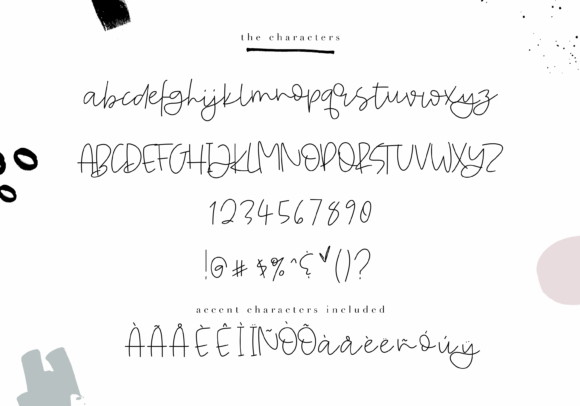 the characters
abcdefghijklmnopqrstuvwxyz
ABCDEFGHIJKLMNOPQRSTUVWXYZ
1234567890
!@#$%^&✓()?
accent characters included
ÀÃÅÈÊÌÏÑÒÔàåèeñóúÿ